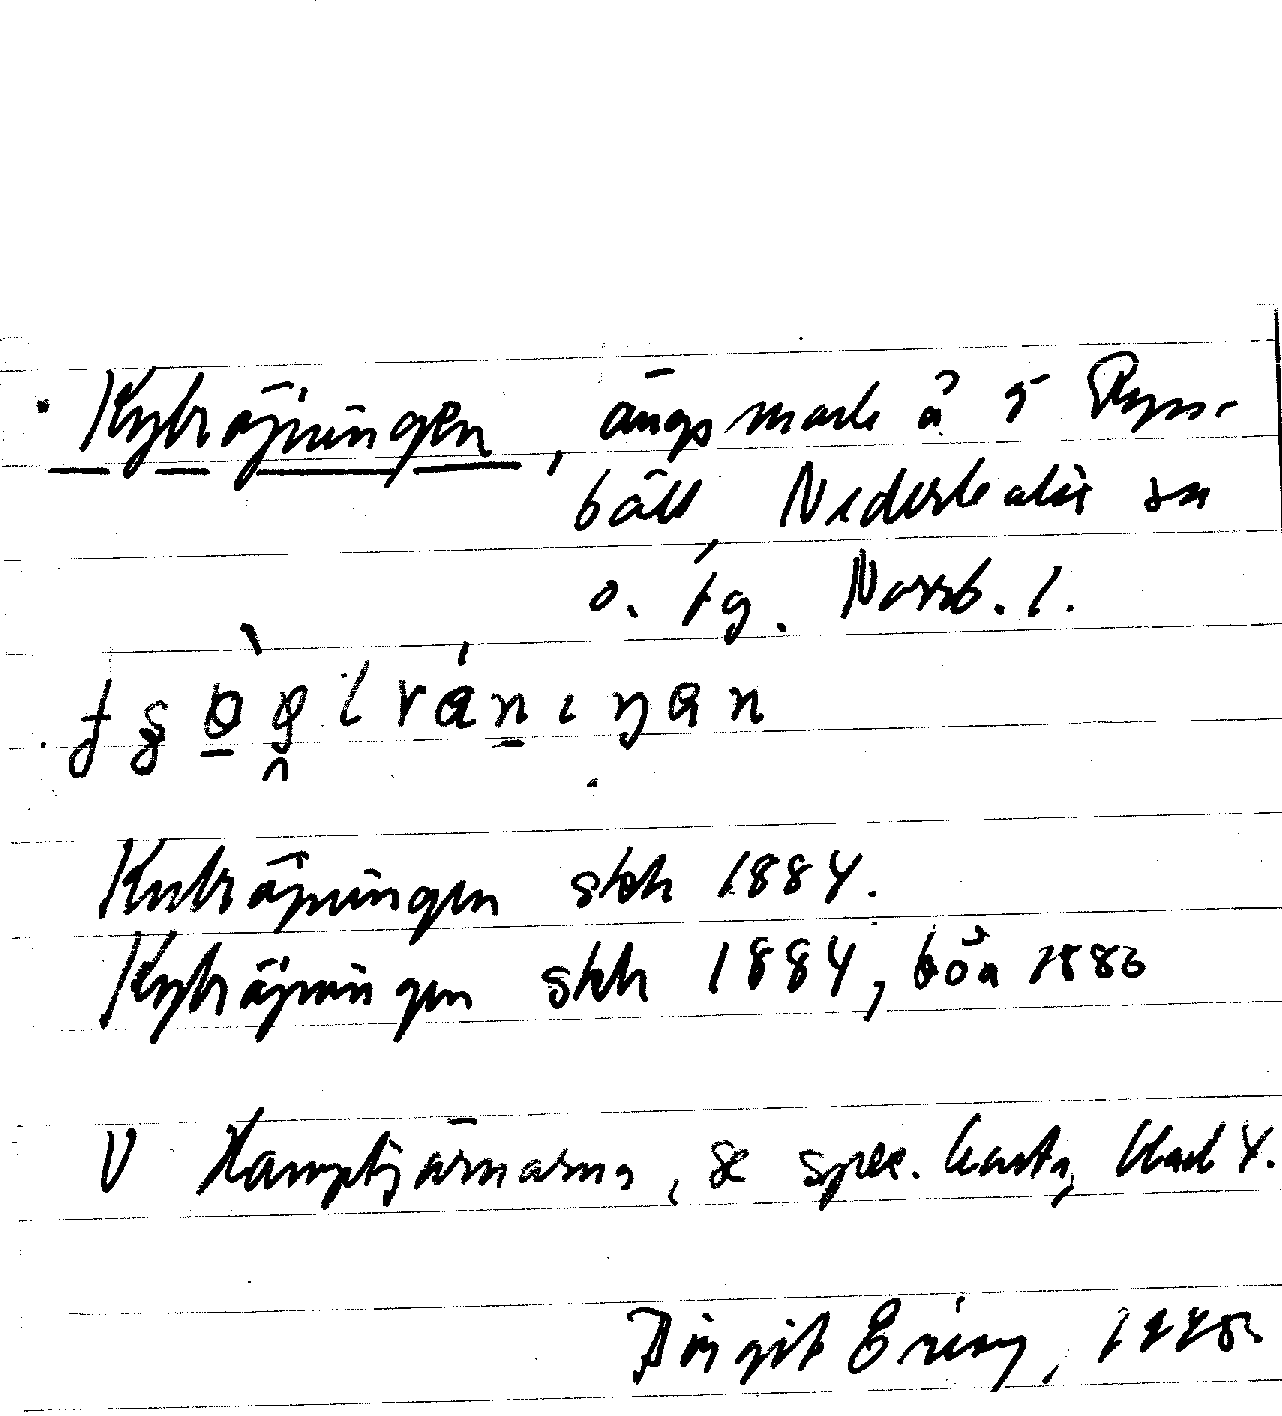 Kylröjningen, ängsmark å g Ryss-
bält, Nederkalix sn
o. tg. Norrb. l.
Kulröjningen skh 1884.
Kylröjningen skh 1884, böa 1886
V Kamptjärnarna, se spec. karta, blad 4.
Birgit